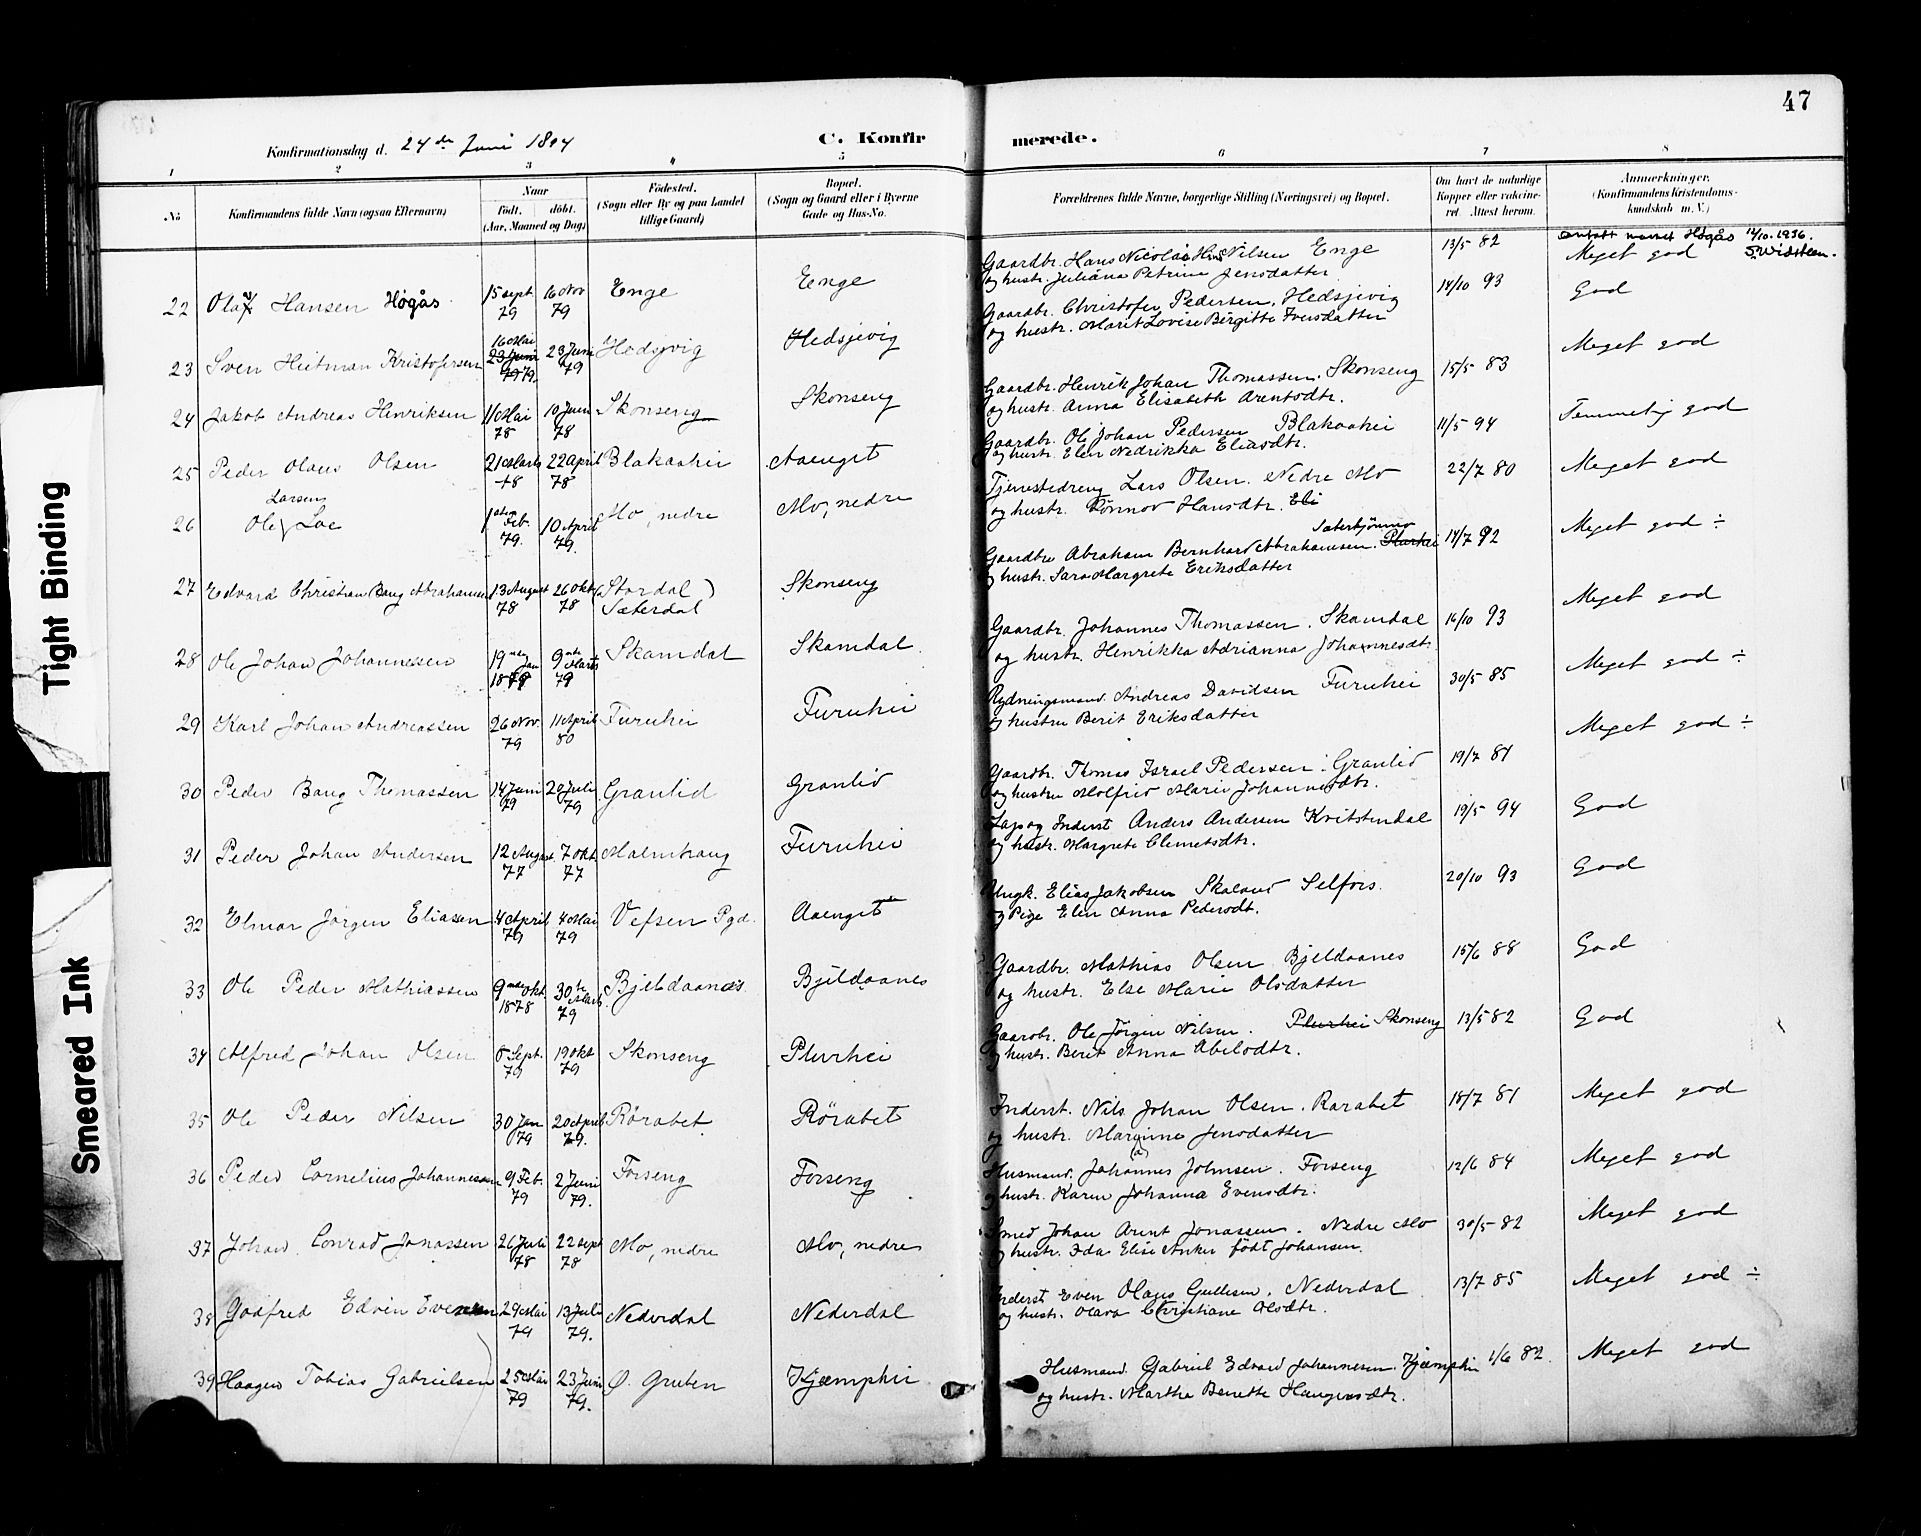 47
Konfirmationsdag d. 24de Juni 1894
C. Konfirmerede.
1 2 3 4 5 6 7 8
No
Konfirmandens fulde Navn (ogsaa Efternavn)
Naar
født. døbt.
(Aar, Maaned og Dag)
Fødested.
(Sogn eller By og paa Landet
tillige Gaard)
Bopæl.
(Sogn og Gaard eller i Byerne
Gade og Hus-No.
Forældrenes fulde Navne, borgerlige Stilling (Næringsvei) og Bopæl.
Om havt de naturlige
Kopper eller vakcine-
ret. Attest herom.
Anmærkninger.
(Konfirmandens Kristendoms-
kundskab m. V.)
antatt navnet Høgås 14/10. 1936.
S. Widsteen.
22 Olaf Hansen Høgås 15 sept 79 16 Nov 79 Enge Enge
Gaardbr. Hans Nicolai Nilsen Enge 13/5 82 Meget god
og hustr. Juliana Petrine Jensdatter
23 Sven Heitman Kristofersen 16 Mai 23 Juni 79. 23 Juni 79 Hedsjevig Hedsjevig
Gaardbr. Christofer Pedersen, Hedsjevig 14/10 93 God
og hustr. Marit Lovise Birgitte Iversdatter
24 Jakob Andreas Henriksen 11 Mai 78 10 Juni 78 Skonseng Skonseng
Gaardbr. Henrik Johan Thomassen. Skonseng 15/5 83 Meget god
og hustr. Anna Elisabeth Arentsdtr.
25 Peder Olaus Olsen 21 Marts 78 22 April 78 Blakaahei Aaenget
Gaardbr. Ole Johan Pedersen Blakaahei 11/5 94 Temmelig god
og hustr. Elen Nedrikka Eliasdtr.
26 Ole Larsen Loe 1 Feb. 79. 10 April 79. Mo, nedre Mo, nedre
Tjenestedreng Lars Olsen. Nedre Mo 22/7 80 Meget god
og hustr. Rønnov Hansdtr. Eli
27 Edvard Christian Bang Abrahamsen 13 August 78 26 Okt 78 (Stordal) Sæterdal Skonseng
Sætertjønmo
Gaardbr Abraham Bernhard Abrahamsen. Plurhei 14/7 92 Meget god ÷
og hustr. Sara Margrete Eriksdatter
28 Ole Johan Johannesen 19 Jan 1879 9 Marts 79 Skamdal Skamdal.
Gaardbr. Johannes Thomassen. Skamdal 16/10 93 Meget god
og hustr. Henrikka Adrianna Johannesdtr
29 Karl Johan Andreassen 26 Nov. 79 11 April 80 Furuhei Furuhei
Rydningsmand Andreas Davidsen Furuhei 30/5 85 Meget god ÷
og hustru Berit Eriksdatter
30 Peder Bang Thomassen 14 Juni 79 20 Juli 79 Granlid Granlid
Gaardbr. Thomas Israel Pedersen. Granlid 19/7 81 Meget god ÷
og hustru Molfrid Marie Johannesdtr.
31 Peder Johan Andersen 12 August 77 7 Okt. 77 Malmhaug Furuhei
Lap og Inderst Anders Andersen Kvitstendal 19/5 94 God
og hustr. Margrete Clemetsdtr.
32 Elmar Jørgen Eliasen 4 April 79 4 Mai 79 Vefsen Pgd. Aaenget
Ungk. Elias Jakobsen Skaland Selfors. 20/10 93 God
og Pige Elen Anna Pedersdt.
33 Ole Peder Mathiassen 9 Okt. 1878 30te Marts 79 Bjeldaanes Bjeldaanes
Gaardbr. Mathias Olsen Bjeldaanes 15/6 88 God
og hustr. Else Marie Olsdatter
34 Alfred Johan Olsen 8 Sept. 79 19 Okt 79 Skonseng Plurhei
Gaardbr. Ole Jørgen Nilsen. Plurhei Skonseng 13/5 82 God
og hustr. Berit Anna Abelsdtr.
35 Ole Peder Nilsen 30 Jan 79 20 April 79. Rørabet Rørabet
Inderst. Nils Johan Olsen. Rørabet 18/7 81 Meget god
og hustr. Marinne Jensdatter
36 Peder Cornelius Johannesen 9 Feb. 79 2 Juni 79. Forseng Forseng
Husmand. Johannes Johnsen. Forseng 12/6 84 Meget god
og hustr. Karen Johanna Evensdtr.
37 Johan Conrad Jonassen 26 Juli 78 22 sept 78 Mo, nedre Mo, nedre
Smed Johan Arent Jonassen. Nedre Mo 30/5 82 Meget god
og hustr. Ida Elise Anker født Johansen.
38 Godfred Edvin Evensen 29 Mai 79 13 Juli 79. Nederdal Nederdal
Inderst Even Olaus Gullesen. Nederdal 13/7 85 Meget god ÷
og hustr. Olava Christiane Olsdtr.
39 Haagen Tobias Gabrielsen 25 Mai 79 23 Juni 79. Ø. Gruben Kjæmphei
Husmand. Gabriel Edvard Johannesen. Kjæmphei 1/6 82. Meget god
og hustr. Martha Benette Haugensdtr.
Tight Binding
Smeared Ink